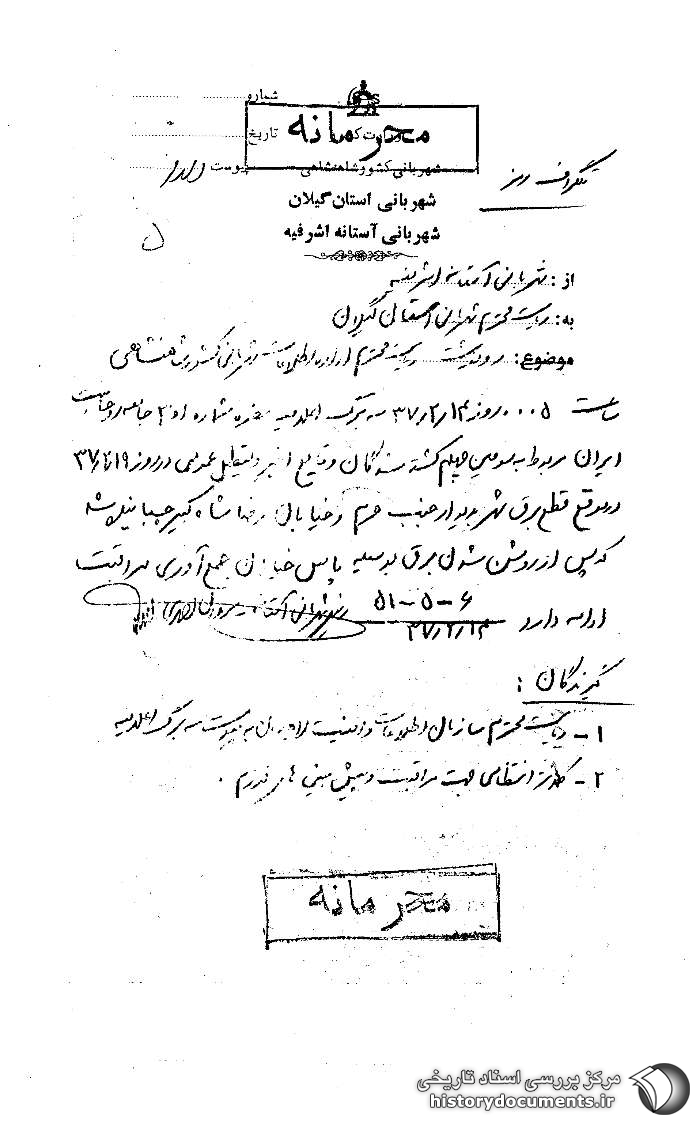 شماره
محرمانه
تاریخ
شهربانی کشور شاهنشاهی
پیوست دارد
تلگراف رمز
شهربانی استان گیلان
شهربانی آستانه اشرفیه
از: شهربانی آستانه اشرفیه
به: ریاست محترم شهربانی استان گیلان
موضوع: رونوشت ریاست محترم اداره اطلاعات شهربانی کشور شاهنشاهی
ساعت ۰۰۰۵ روز ۳۷/۲/۱۴ سه برگ اعلامیه شماره ۱ و ۲ جامعه روحانیت
ایران مربوط به سومین چهلم کشته شدگان وقایع اخیر و تعطیل عمومی در روز
در موقع قطع برق شهر بدیوار جنب حرم و خیابان رضا شاه کبیر چسبانیده شده
که پس از روشن شدن برق بوسیله پاس خیابان جمع آوری مراقبت
ادامه دارد ۶-۵-۵۱
۳۷/۲/۱۴
گیرندگان:
۱- ریاست محترم سازمان اطلاعات و امنیت لاهیجان به پیوست سه برگ اعلامیه
۲- انتظامی جهت مراقبت و پیش بینی های لازم.
محرمانه
مرکز بررسی اسناد تاریخی
historydocuments.ir